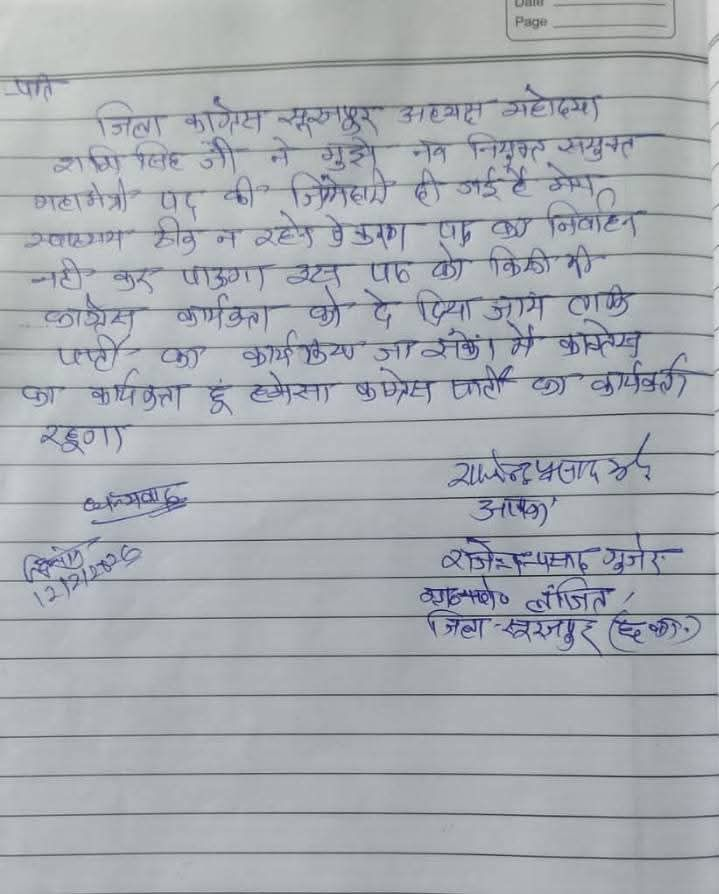 Date
Page
प्रति
जिला कांग्रेस सूरजपुर अध्यक्ष महोदया
शशि सिंह जी ने मुझे नव नियुक्त संयुक्त
महामंत्री पद की जिम्मेदारी दी गई है मेरा
स्वास्थ्य ठीक न रहने के कारण पद का निर्वाहन
नही कर पाऊंगा इस पद को किसी भी
कांग्रेस कार्यकर्ता को दे दिया जाय ताकि
पार्टी का कार्य किया जा सके। मैं कांग्रेस
का कार्यकर्ता हूं हमेसा कांग्रेस पार्टी का कार्यकर्ता
रहूगा
धन्यवाद
राजेन्द्र प्रसाद
आपका
दिनांक
12/2/2026
राजेन्द्र प्रसाद गुर्जर
जिला-सूरजपुर (छ.ग.)